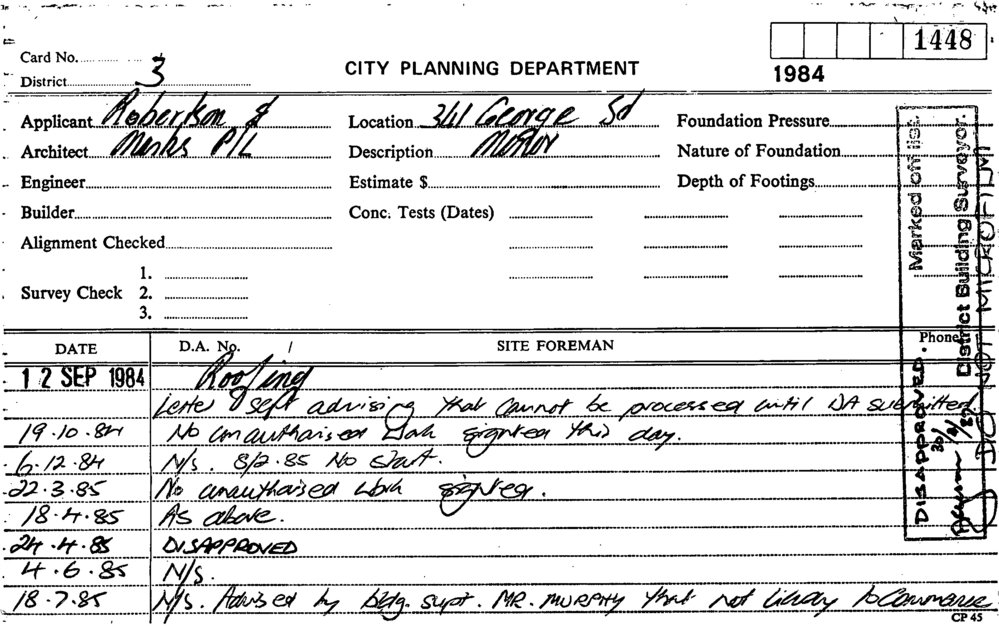 1448
Card No.
CITY PLANNING DEPARTMENT
1984
District 3
Applicant Robertson &
Architect Marks P/L
Engineer
Builder
Alignment Checked
Survey Check
1.
2.
3.
Location 341 George St
Description Motor
Estimate $
Conc. Tests (Dates)
Foundation Pressure
Nature of Foundation
Depth of Footings
Marked off list.
District Building Surveyor.
DISAPPROVED.
DO NOT MICROFILM
DATE D.A. No. / SITE FOREMAN Phone
12 SEP 1984 Roofing
sept advising that cannot be processed until DA submitted
19.10.84 No unauthorised work sighted this day.
6.12.84 N/s. 8/2.85 No start.
22.3.85 No unauthorised work sighted.
18.4.85 As above.
24.4.85 DISAPPROVED
4.6.85 N/s.
18.7.85 N/s. Advised by bldg. supt. MR. MURPHY that not likely to commence
CP 45